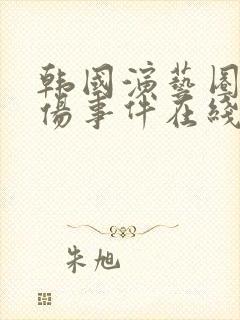 韩國演藝圈
傷事件在綫
朱旭